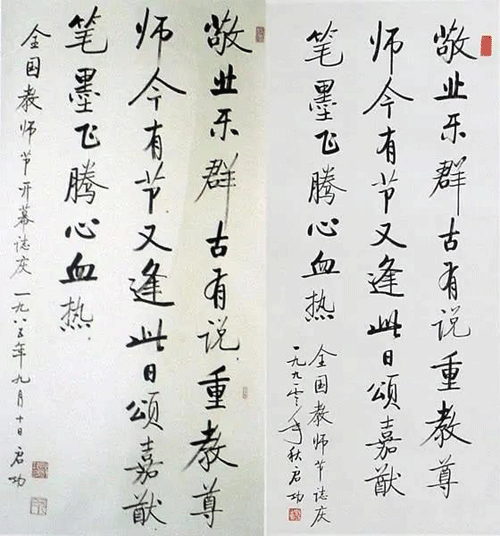 敬业乐群古有说重教尊
师今有节又逢此日颂嘉猷
笔墨飞腾心血热
全国教师节誌庆
一九九〇年秋启功
敬业乐群古有说重教尊
师今有节又逢此日颂嘉猷
笔墨飞腾心血热
全国教师节开幕誌庆一九八五年九月十日启功